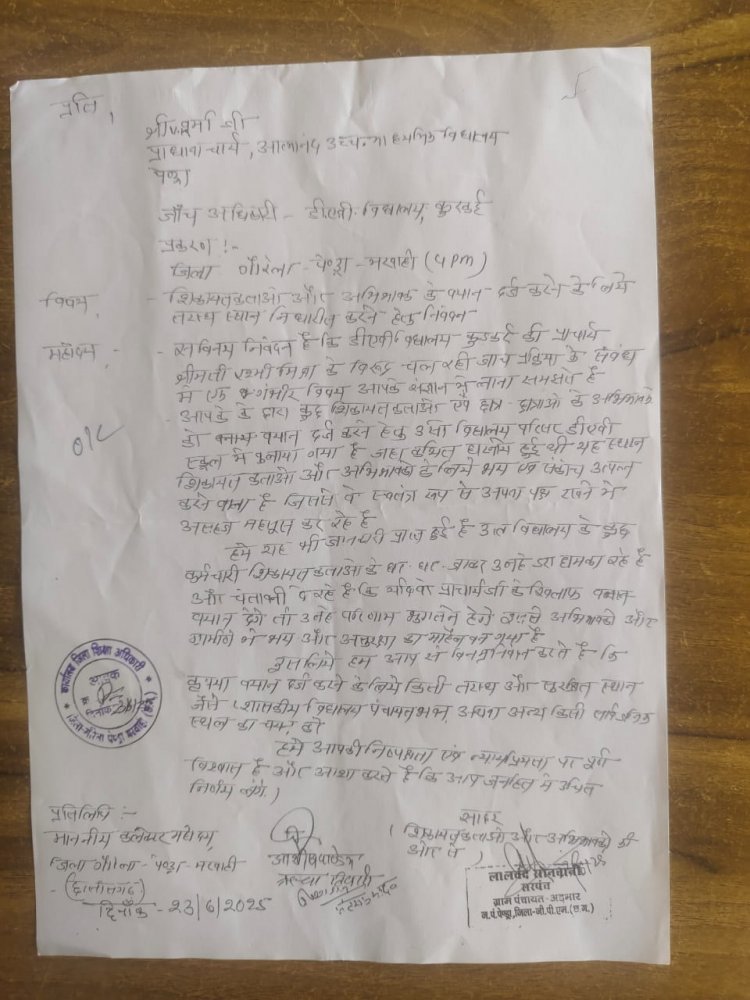 प्रति,
श्री शर्मा जी
प्राधानाचार्य, आत्मानंद उच्च. माध्यमिक विद्यालय
पेण्ड्रा
जाँच अधिकारी - डीएवी. विद्यालय, कुडकई
प्रकरण :-
जिला गौरेला - पेण्ड्रा - मरवाही (GPM)
विषय - शिकायतकर्ताओ और अभिभावक के बयान दर्ज करने के लिये
तटस्थ स्थान निर्धारित करने हेतु निवेदन
महोदय - सविनय निवेदन है कि डीएवी विद्यालय कुडकई की प्राचार्य
श्रीमती रश्मी मिश्रा के विरूद्ध चल रही जांच प्रक्रिया के संबंध
मे एक गंभीर विषय आपके संज्ञान मे लाना समझते है
- आपके के द्वारा कुछ शिकायतकर्ताओ एवं छात्र - छात्राओ के अभिभावको
को बयान दर्ज करने हेतु उसी विद्यालय परिसर डीएवी
स्कूल मे बुलाया गया है जहा कथित हुई थी यह स्थान
शिकायतकर्ताओ और अभिभावको के लिये भय एवं संकोच उत्पन्न
करने वाला है जिससे वे स्वतंत्र रूप से अपना पक्ष रखने मे
असहज महसूस कर रहे है
o/c
हमे यह भी जानकारी प्राप्त हुई है उक्त विद्यालय के कुछ
कर्मचारी शिकायतकर्ताओ के घर - घर जाकर उन्हे डरा धमका रहे है
और चेतावनी दे रहे है कि यदि वे प्राचार्य जी के खिलाफ
बयान देंगे तो उन्हे परिणाम भुगतने होंगे इससे अभिभावको और
ग्रामीणो मे भय और असुरक्षा का माहौल बन गया है
इसलिये हम आप से विनम्र निवेदन करते है कि
कृपया बयान दर्ज करने के लिये किसी तटस्थ और सुरक्षित स्थान
जैसे शासकीय विद्यालय पंचायत भवन अथवा अन्य किसी सार्वजनिक
स्थल का चयन करे
हमे आपकी निष्पक्षता एवं न्यायप्रियता पर पूर्ण
विश्वास है और आशा करते है कि आप जनहित मे उचित
निर्णय लेंगे.)
कार्यालय जिला शिक्षा अधिकारी
जिला-गौरेला पेण्ड्रा मरवाही (छ.ग.)
सादर
(शिकायतकर्ताओ और अभिभावको की
ओर से
प्रतिलिपि :-
माननीय कलेक्टर महोदय,
जिला गौरेला - पेण्ड्रा - मरवाही
(छत्तीसगढ़)
दिनाँक - 23/6/2025
लालचंद सोनवानी
सरपंच
ग्राम पंचायत-अड़भार
ज.पं.पेण्ड्रा, जिला-जी.पी.एम.(छ.ग.)